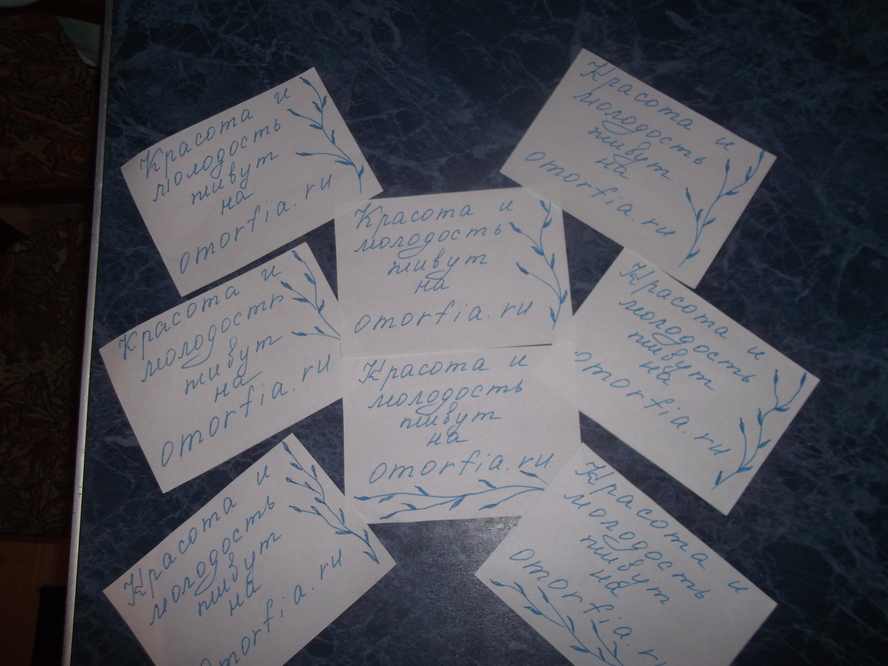 Красота и
молодость
живут
на
omorfia.ru
Красота и
молодость
живут
на
omorfia.ru
Красота и
молодость
живут
на
omorfia.ru
Красота и
молодость
живут
на
omorfia.ru
Красота и
молодость
живут
на
omorfia.ru
Красота и
молодость
живут
на
omorfia.ru
Красота и
молодость
живут
на
omorfia.ru
Красота и
молодость
живут
на
omorfia.ru